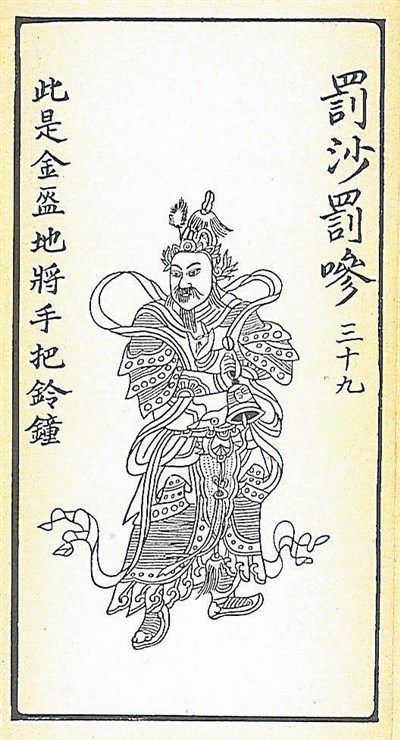 罰沙罰嘇 三十九
此是金盔地將手把鈴鐘